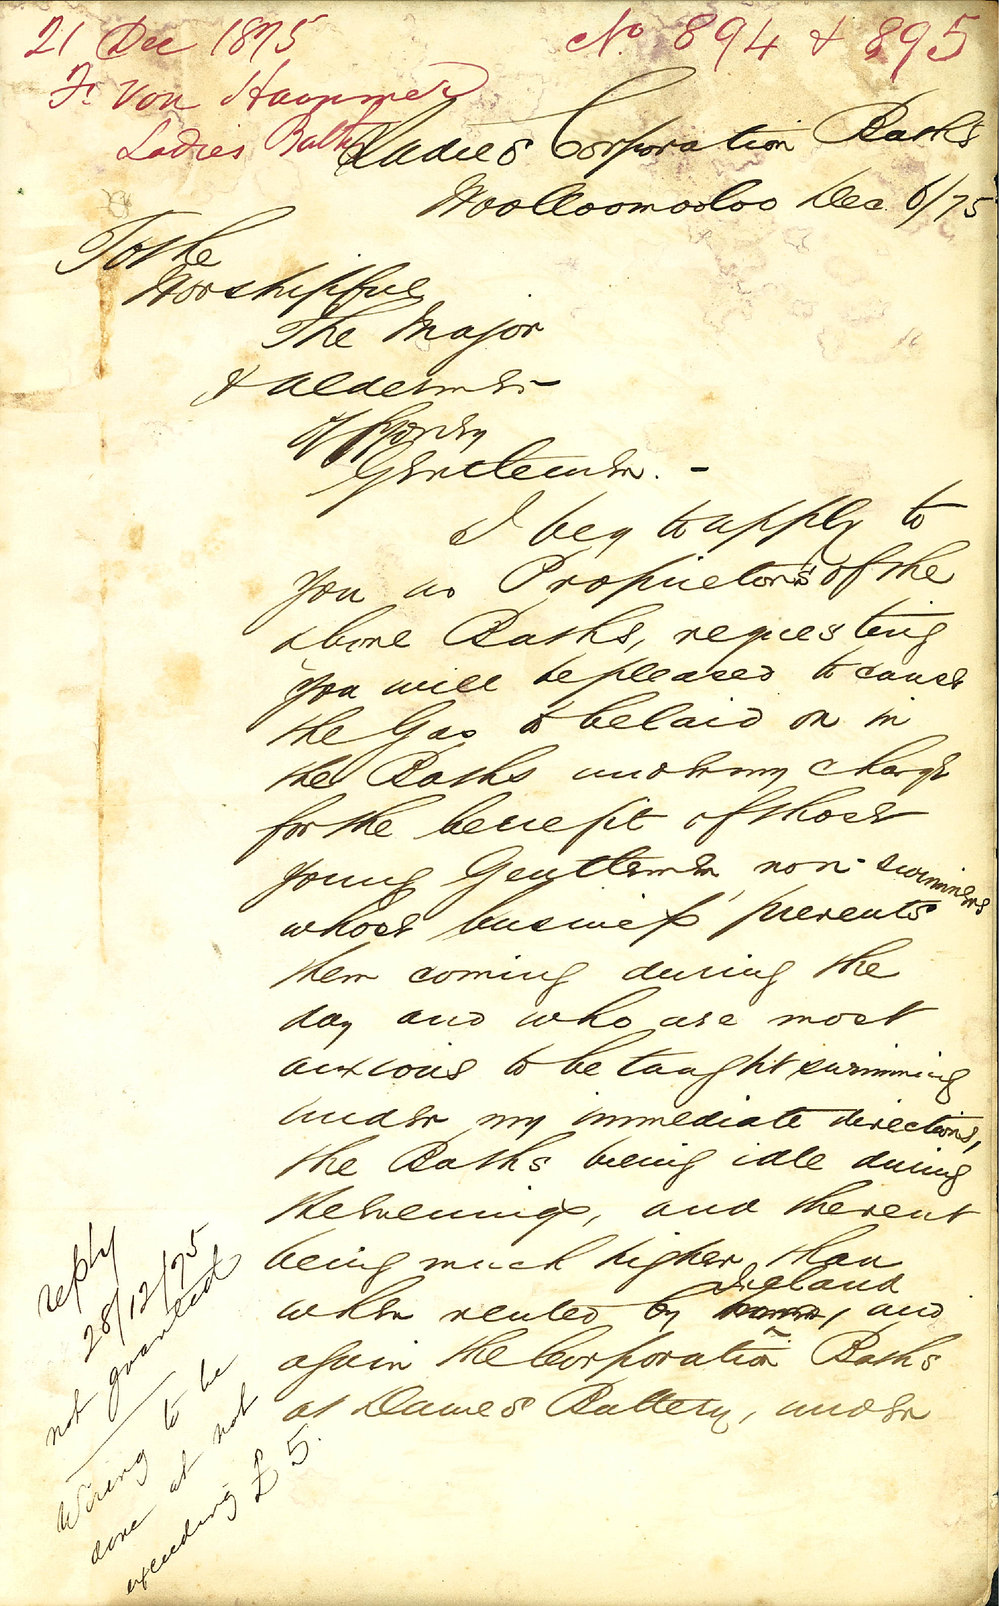 21 Dec 1875
No 894 & 895
Fr Von Hammer
Ladies Baths
Ladies Corporation Baths
Woolloomooloo Dec 6/75
To the
Worshipful
The Major
& Aldermen -
of Sydney
Gentlemen. -
I beg to apply to
you as Proprietors of the
above Baths, requesting
you will be pleased to cause
the Gas to be laid on in
the Baths under my charge
for the benefit of those
young Gentlemen, non-swimmers
whose business prevents
them coming during the
day and who are most
anxious to be taught swimming
under my immediate directions,
the Baths being idle during
the evenings, and the rent
being much higher than
when rented by Ireland, and
again the Corporation Baths
at Dawes Battery, under
reply
28/12/75
not granted
Wiring to be
done at not
exceeding £5.